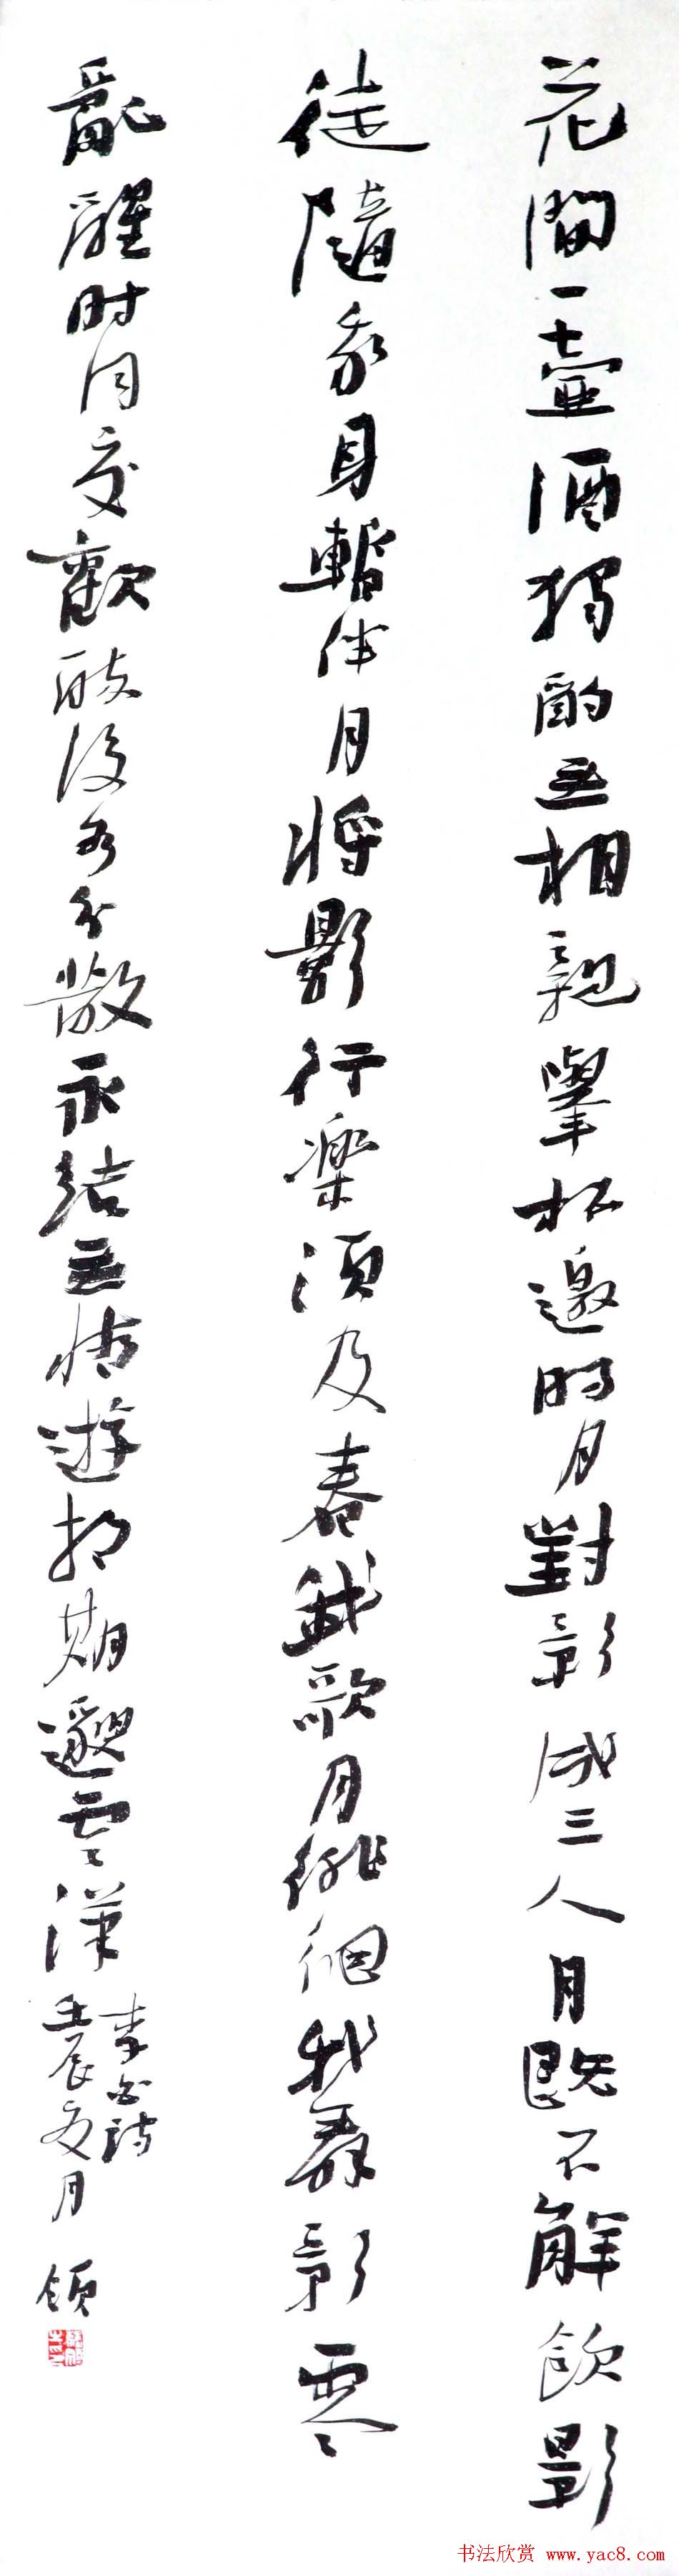 花間一壺酒獨酌無相親舉杯邀明月對影成三人月既不解飲影
徒隨我身暫伴月將影行樂須及春我歌月徘徊我舞影零
亂醒时同交歡醉後各分散永結無情遊相期邈雲漢
李白詩
壬辰夏月 領
书法欣赏 www.yac8.com